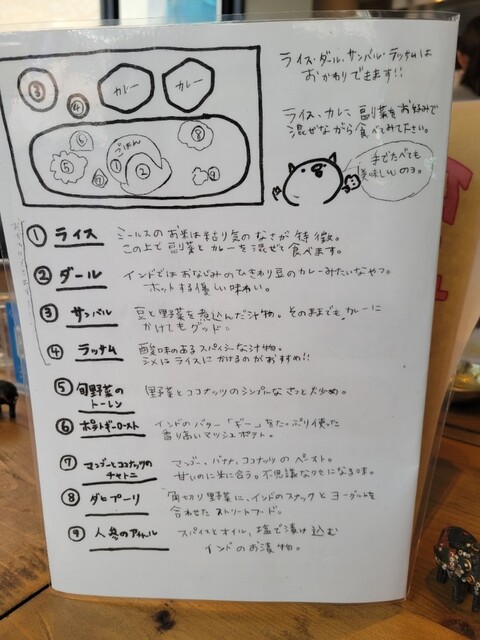 ライス・ダール・サンバル・ラッサムは
おかわりできます!!
ライス、カレー、副菜をお好みで
混ぜながら食べてみて下さい。
手でたべても
美味しいのョ。
③
④
カレー
カレー
ごはん
⑥
⑧
⑤
①
②
⑦
⑨
① ライス
ミールスのお米は粘り気のなさが特徴。
この上で副菜とカレーを混ぜて食べます。
② ダール
インドではおなじみのひきわり豆のカレーみたいなやつ。
ホッとする優しい味わい。
③ サンバル
豆と野菜を煮込んだ汁物。そのままでも、カレーに
かけてもグッド。
④ ラッサム
酸味のあるスパイシーな汁物。
シメにライスにかけるのがおすすめ!!
⑤ 旬野菜の
トーレン
野菜とココナッツのシンプルなさっと炒め。
⑥ ポテトギーロースト
インドのバター「ギー」をたっぷり使った
香り高いマッシュポテト。
⑦ マンゴーとココナッツの
チャトニ
マンゴー、バナナ、ココナッツのペースト。
甘いのに米に合う。不思議なクセになる味。
⑧ ダヒプーリ
角切り野菜に、インドのスナックとヨーグルトを
合わせたストリートフード。
⑨ 人参のアチャール
スパイスとオイル、塩で漬け込む
インドのお漬物。